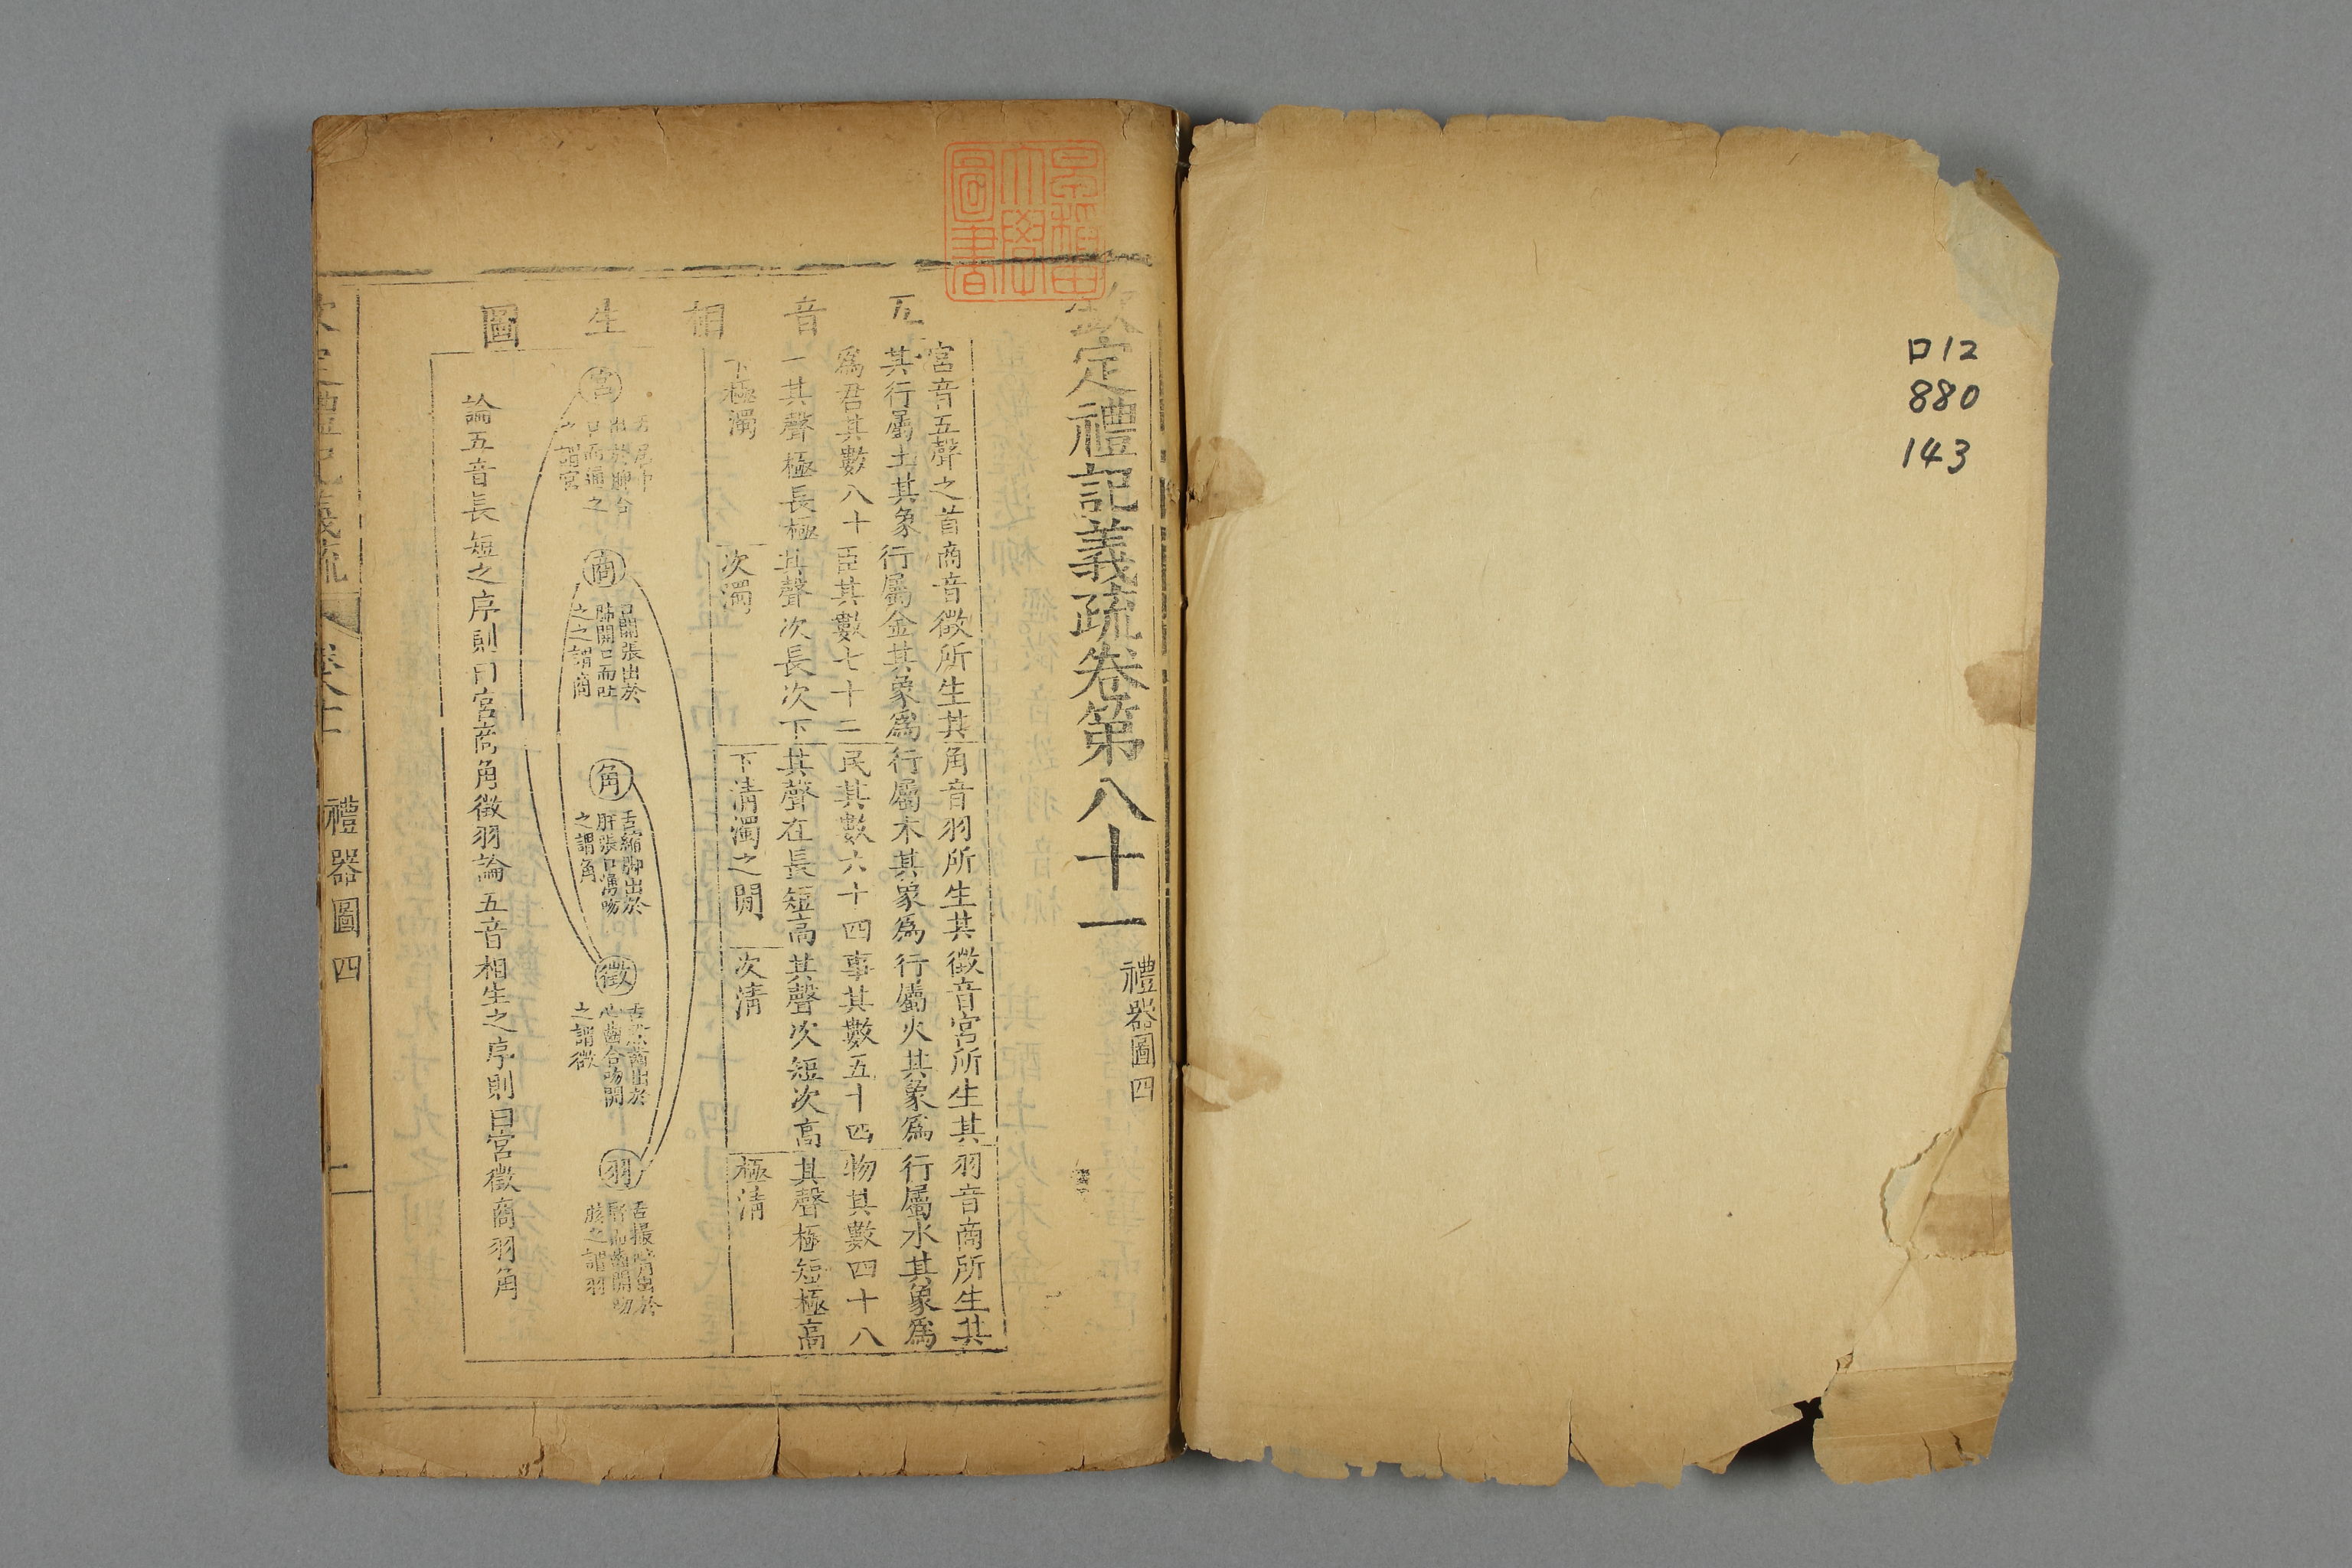 口12
880
143
欽定禮記義疏卷第八十一
禮器圖四
五音相生圖
宮音五聲之首
其行屬土其象
為君其數八十
一其聲極長極
下極濁
商音徵所生其
行屬金其象為
臣其數七十二
其聲次長次下
次濁
角音羽所生其
行屬木其象為
民其數六十四
其聲在長短高
下清濁之閒
徵音宮所生其
行屬火其象為
事其數五十四
其聲次短次高
次清
羽音商所生其
行屬水其象為
物其數四十八
其聲極短極高
極清
宮
舌居中
出於脾合
口而通之
之謂宮
商
口開張出於
肺開口而吐
之之謂商
角
舌縮脚出於
肝張口湧吻
之謂角
徵
舌出於
心齒合吻開
之謂徵
羽
舌撮出於
齒開吻
之謂羽
論五音長短之序則曰宮商角徵羽論五音相生之序則曰宮徵商羽角
欽定禮記義疏
卷八十一
禮器圖四
一
早稻田
大學
圖書